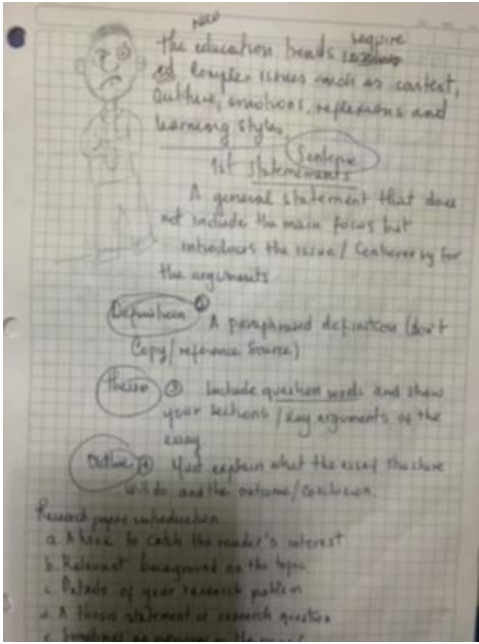 new
the education trends require
ed complex issues such as context,
culture, emotions, reflexions and
learning styles.
Sentence
1st statemements
A general statement that does
not include the main focus but
introduces the issue/ Controversy for
the arguments
Definition 2 A paraphrased definition (don't
Copy/reference Source)
thesis 3 Include question words and show
your sections / key arguments of the
essay
Outline 4 Must explain what the essay structure
will do and the outcome/conclusion.
Research paper introduction
a. A hook to catch the reader's interest
b. Relevant background on the topic
c. Details of your research problem
d. A thesis statement or research question
e. Sometimes an overview of the